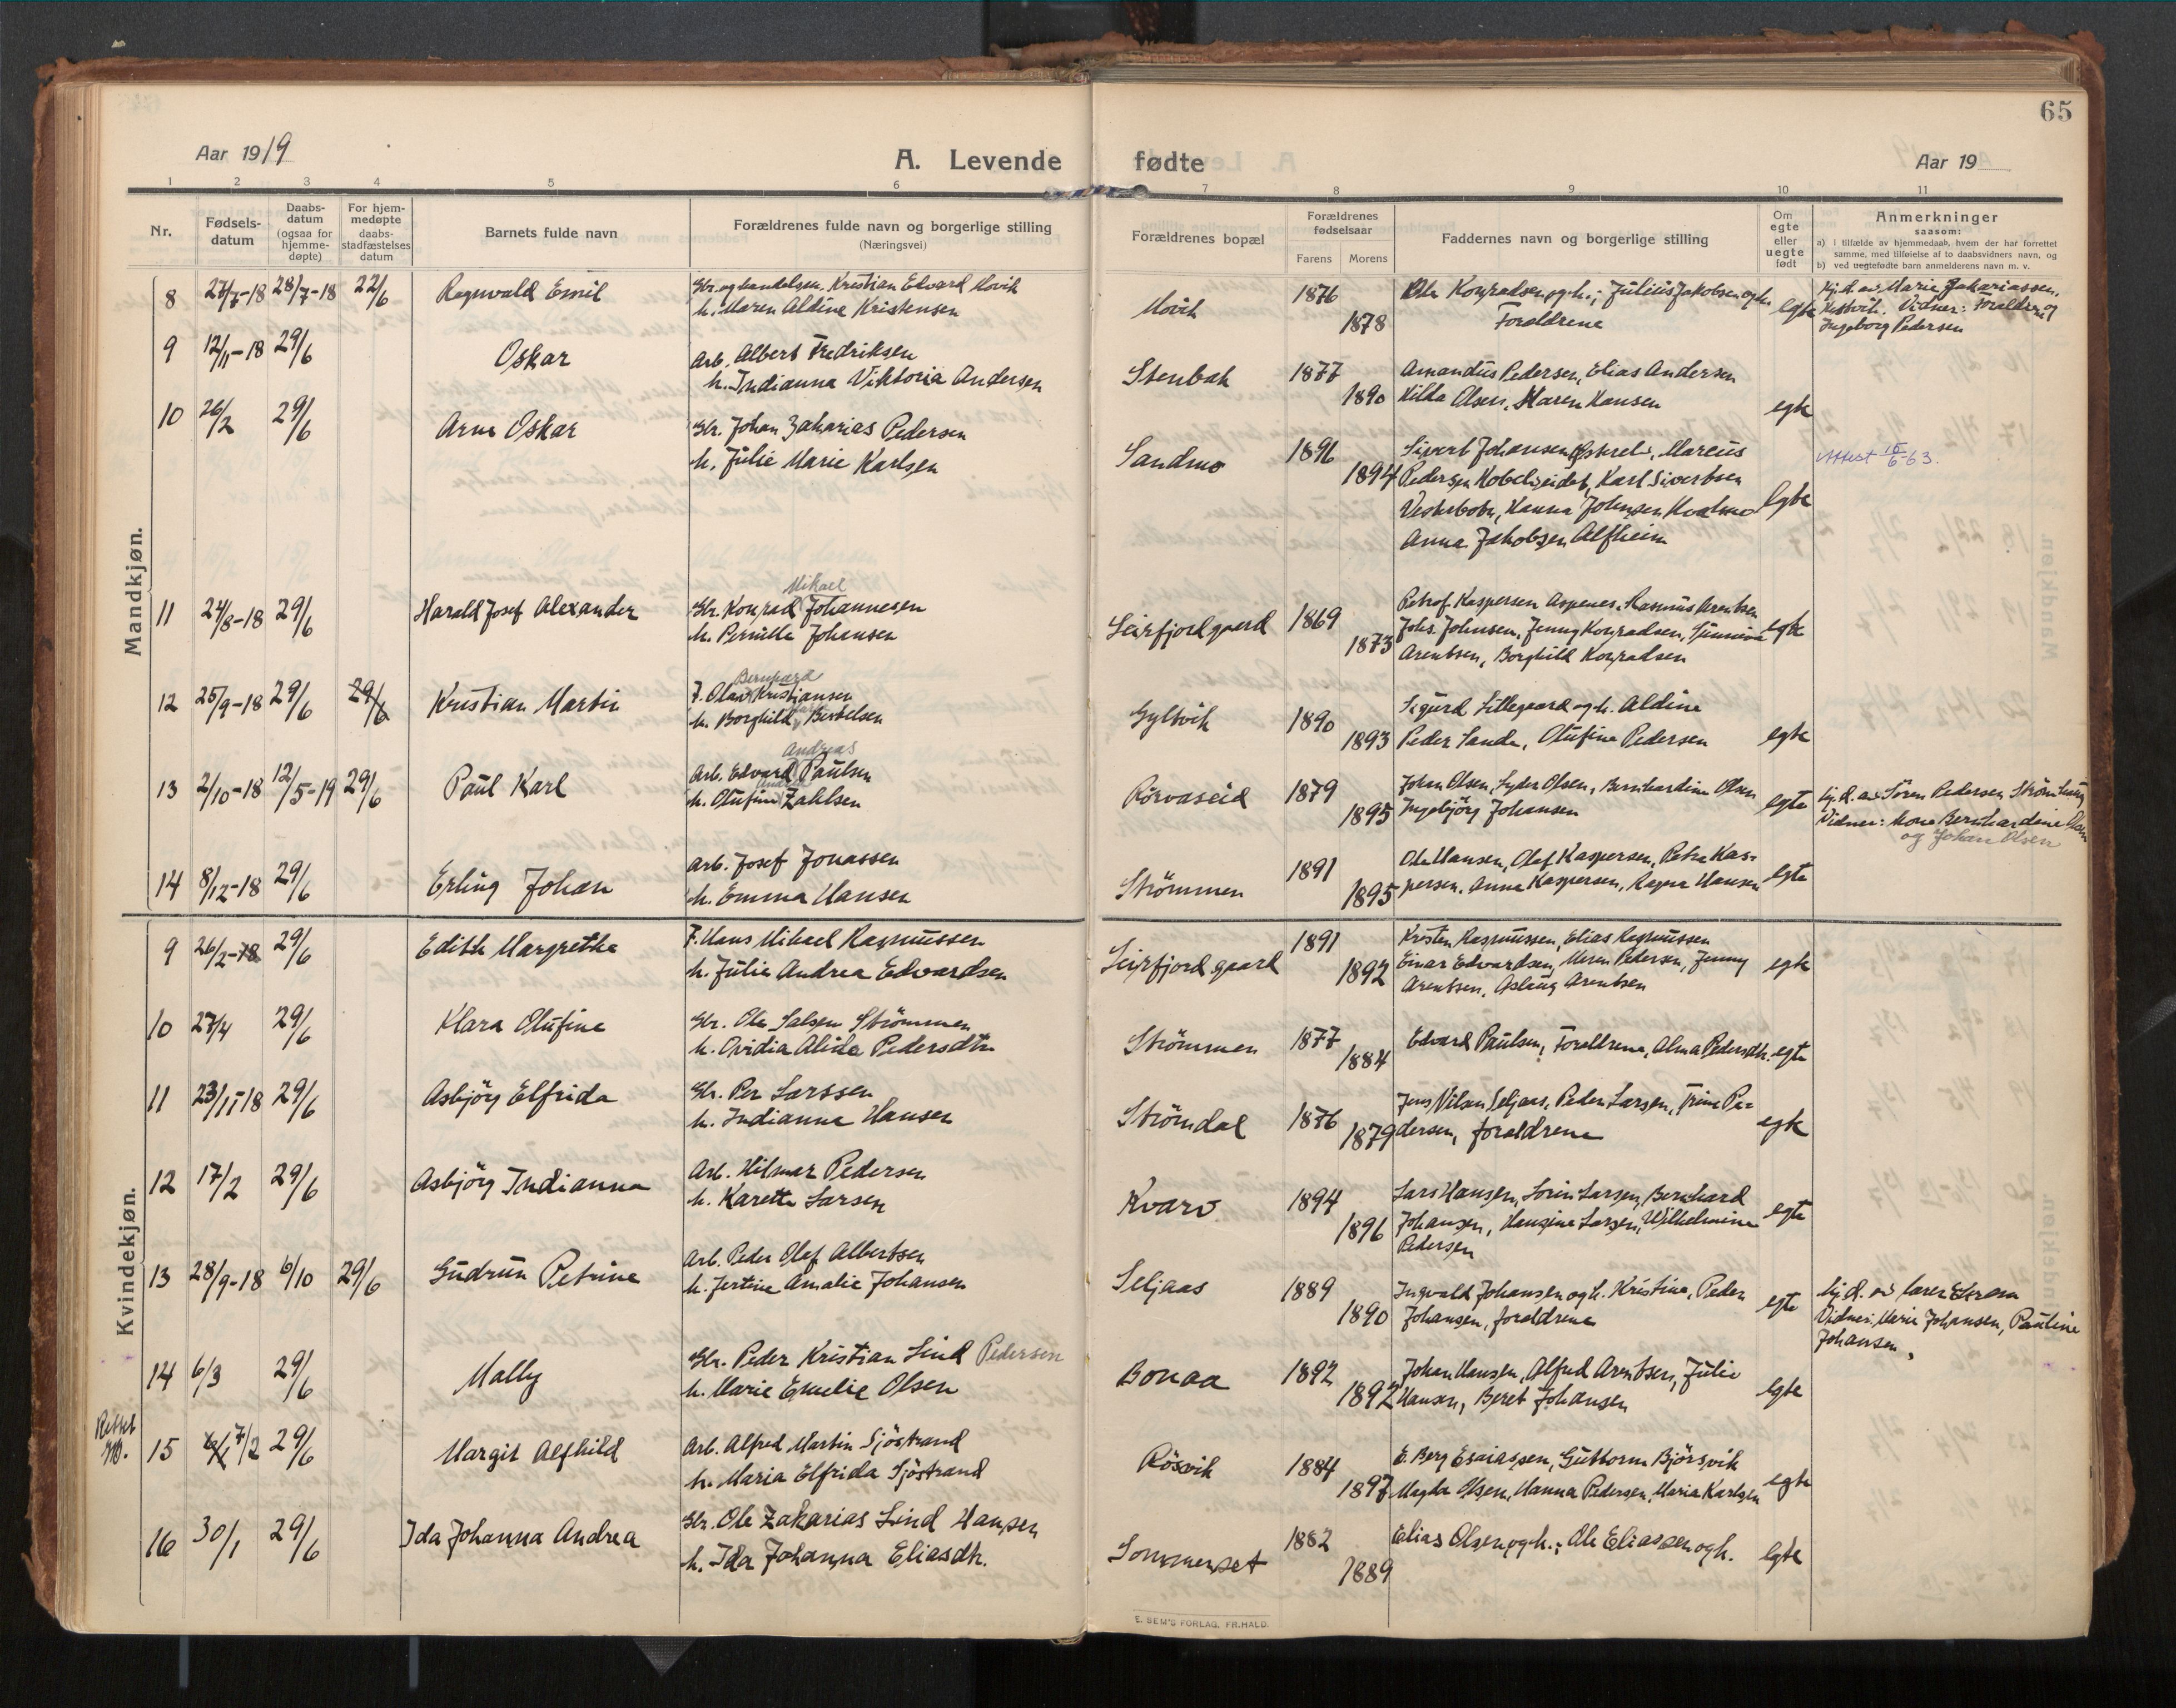 65
Aar 1919
A. Levende fødte
Aar 19
1 2 3 4 5 6 7 8 9 10 11
Nr.
Fødsels-
datum
Daabs-
datum
(ogsaa for
hjemme-
døpte)
For hjem-
medøpte
daabs-
stadfæstelses
datum
Barnets fulde navn
Forældrenes fulde navn og borgerlige stilling
(Næringsvei)
Forældrenes bopæl
Forældrenes
fødselsaar
Farens Morens
Faddernes navn og borgerlige stilling
Om
egte
eller
uegte
født
Anmerkninger
saasom:
a) i tilfælde av hjemmedaab, hvem der har forrettet
samme, med tilføielse af to daabsvidners navn, og
b) ved uegtefødte barn anmelderens navn m. v.
Mandkjøn.
8 27/7-18 28/7-18 22/6 Ragnvald Emil
Gbr. og handelsm. Kristian Edvard Movik
h. Maren Aldine Kristensen
Movik 1876 1878
Ole Konradsen og h.; Julius Jakobsen og h.
Foreldrene
egte
Hj. d. av Marie Zakariassen,
Vidner: Foreldre og
Ingeborg Pedersen
9 12/11-18 29/6 Oskar
Arb. Albert Fredriksen
h. Indianna Viktoria Andersen
Stenbak 1877 1890
Amandus Pedersen, Elias Andersen
Hilda Olsen, Maren Hansen
egte
10 26/2 29/6 Arne Oskar
Gbr. Johan Zakarias Pedersen
h. Julie Marie Karlsen
Sandmo 1896 1894
Sivert Johansen, Marcus
Pedersen Kobbelveidet, Karl Sivertsen
Vesterbotn, Hanna Johnsen
Anna Jakobsen Alfheim
egte
Attest 15/6-63.
11 24/8-18 29/6 Harald Josef Alexander
Mikael
Gbr. Konrad Johannesen
h. Pernille Johansen
Leirfjordgaard 1869 1873
Petrof Kaspersen Aspenes, Rasmus Arentsen
Johs. Johnsen, Jenny Konradsen, Sunniva
Arentsen, Borghild Konradsen
egte
12 25/9-18 29/6 29/6 Kristian Martin
Bernhard
F. Olav Kristiansen
h. Borghild Bertelsen
Gyltvik 1890 1893
Sigurd Lillegaard og h. Aldine
Peder Sande, Olufine Pedersen
egte
13 2/10-18 12/5-19 29/6 Paul Karl
Andreas
Arb. Edvard Paulsen
h. Olufine Zahlsen
Rörvaseid 1879 1895
Johan Olsen, Syder Olsen, Bernhardine Olsen
Ingebjörg Johansen
egte
Hj. d. av Sören Pedersen Strömhaug
Vidner: Mona Bernhardine Olsen
og Johan Olsen
14 8/12-18 29/6 Erling Johan
Arb. Josef Jonassen
h. Emma Hansen
Strömmen 1891 1895
Ole Hansen, Olaf Kaspersen, Petra Kas-
persen, Anna Kaspersen, Ragna Hansen
egte
Kvindekjøn.
9 26/2-18 29/6 Edith Margrethe
F. Hans Mikael Rasmussen
h. Julie Andrea Edvardsen
Leirfjordgaard 1891 1892
Kristen Rasmussen, Elias Rasmussen
Einar Edvardsen, Maren Pedersen, Jenny
Arentsen, Aslaug Arentsen
egte
10 27/4 29/6 Klara Olufine
Gbr. Ole Salsen Strömmen
h. Ovidia Alida Pedersdtr
Strömmen 1877 1884
Edvard Paulsen, Foreldrene, Alma Pedersdtr.
egte
11 23/11-18 29/6 Asbjörg Elfrida
Gbr. Per Larssen
h. Indianna Hansen
Strömdal 1876 1879
Jens Nilsen Seljaas, Peder Larsen, Trine Pe-
dersen, foreldrene
egte
12 17/2 29/6 Asbjörg Indianna
Arb. Hilmar Pedersen
h. Karette Larsen
Kvarv 1894 1896
Lars Hansen, Sorin Larsen, Bernhard
Johansen, Hansine Larsen, Wilhelmine
Pedersen
egte
13 28/9-18 6/10 29/6 Gudrun Petrine
Arb. Peder Olaf Albertsen
h. Jertine Amalie Johansen
Seljaas 1889 1890
Ingvald Johansen og h. Kristine, Peder
Johansen, foreldrene
egte
Hj. d. av lærer
Vidner: Marie Johansen, Pauline
Johansen,
14 6/3 29/6 Mally
Gbr. Peder Kristian Lind Pedersen
h. Marie Emelie Olsen
Bonaa 1892 1892
Johan Hansen, Alfred Arntsen, Julie
Hansen, Beret Johansen
egte
Rettet
15 7/2 29/6 Margit Alfhild
Arb. Alfred Martin Sjöstrand
h. Maria Elfrida Sjöstrand
Rösvik 1884 1897
E. Berg Esaiassen, Guttorm Björsvik
Magda Olsen, Hanna Pedersen, Maria Karlsen
egte
16 30/1 29/6 Ida Johanna Andrea
Gbr. Ole Zakarias Lind Hansen
h. Ida Johanna Eliasdtr.
Sommerset 1882 1889
Elias Olsen og h.; Ole Eliassen og h.
egte
E. SEM'S FORLAG, FR.HALD.